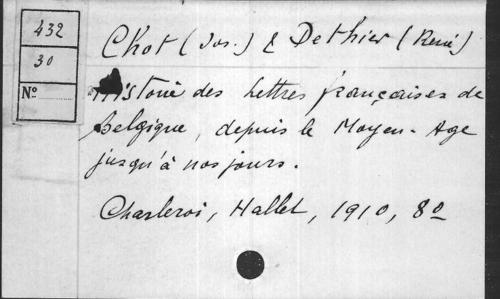 432
30
No
Chot (Jos.) & Dethier (René)
Histoire des Lettres françaises de
Belgique, depuis le Moyen-Age
jusqu'à nos jours.
Charleroi, Hallet, 1910, 8o